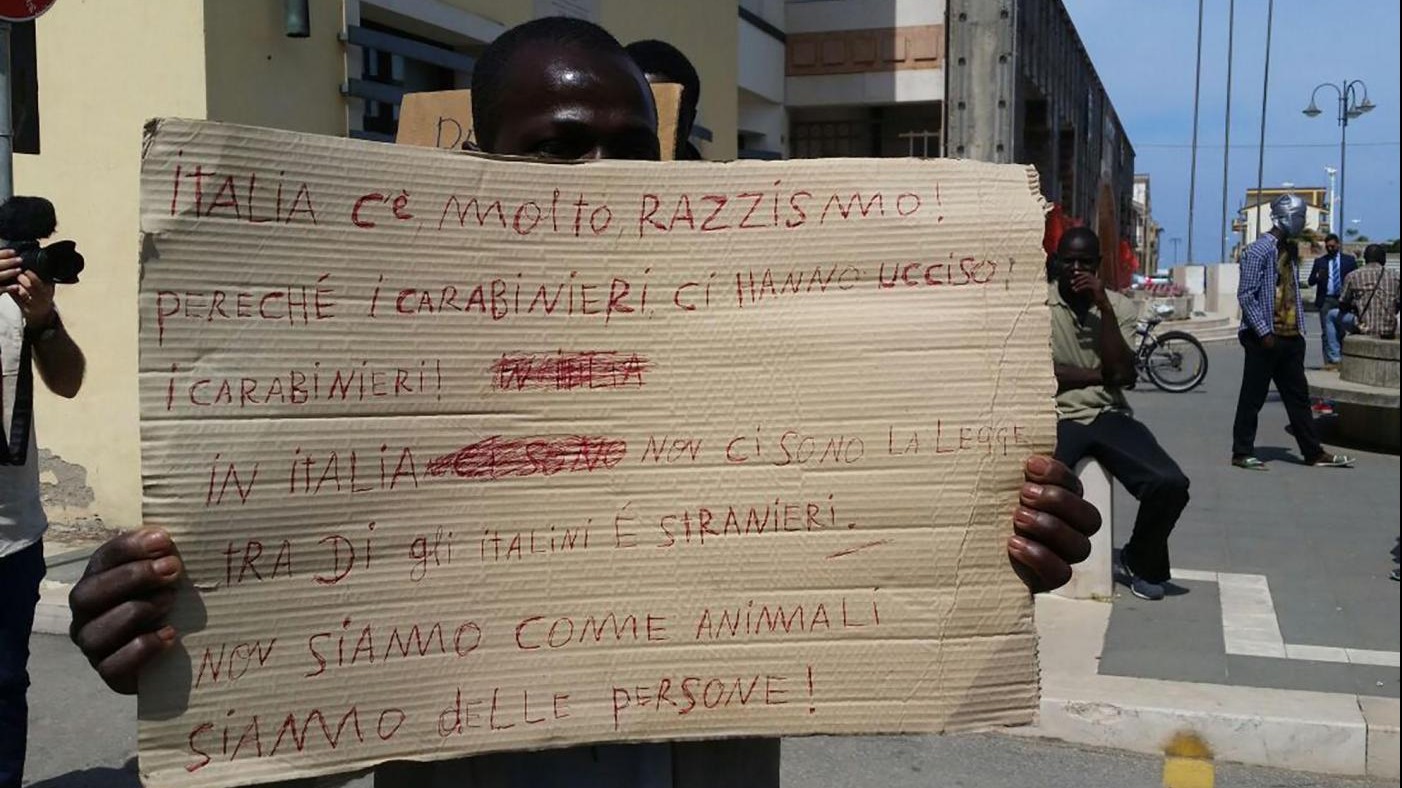 iTALiA c'è molto RAZZiSMO!
PERECHÉ i CARABiNiERi Ci HANNO UCCiSO!
i CARABiNiERi!
iN iTALiA NON Ci SONO LA LEGGE
tRA Di gli iTALiNi É StRANiERi.
NON SiAMO COME ANiMALi
SiAMO dELLE PERSONE!